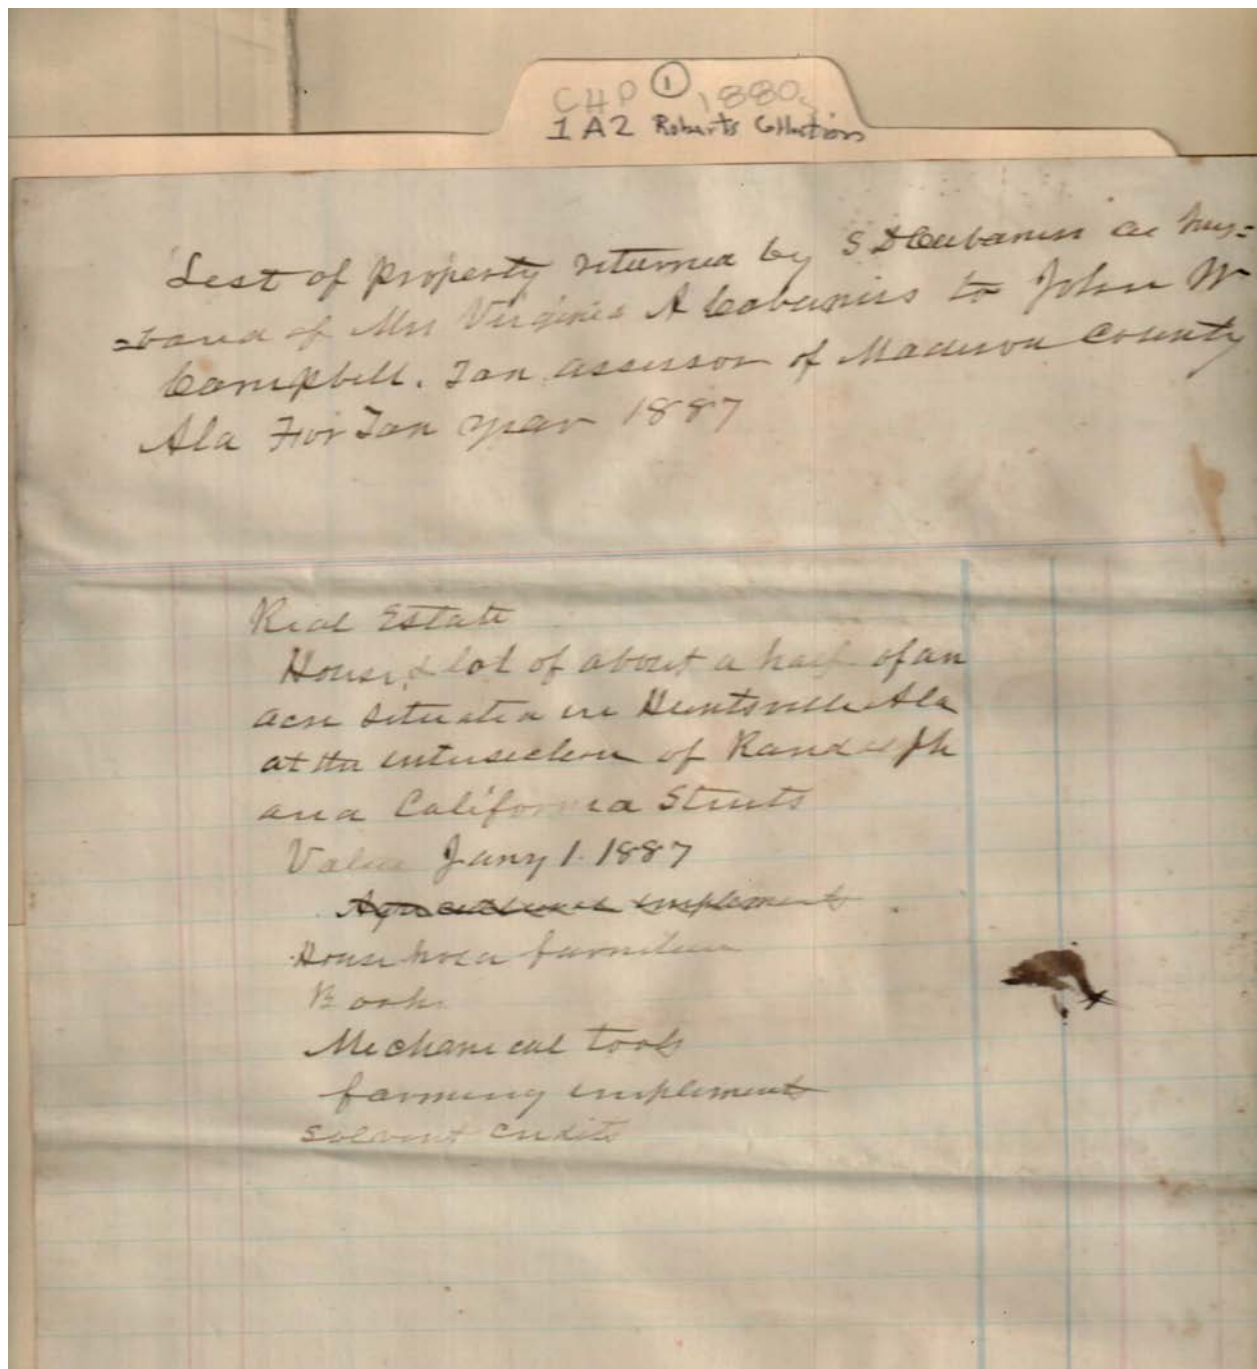 CHP ① 1880s
1A2 Roberts Collection
List of Property returned by S D Cabaniss as hus=
=band of Mrs Virginia A Cabaniss to John W
Campbell. Tax assessor of Madison County
Ala For Tax year 1887
Real Estate
House & lot of about a half of an
acre situated in Huntsville Ala
at the intersection of Randolph
and California Streets
Value Jany 1. 1887
Agricultural implements
Household furniture
Books
Mechanical tools
farming implements
Solvent credits